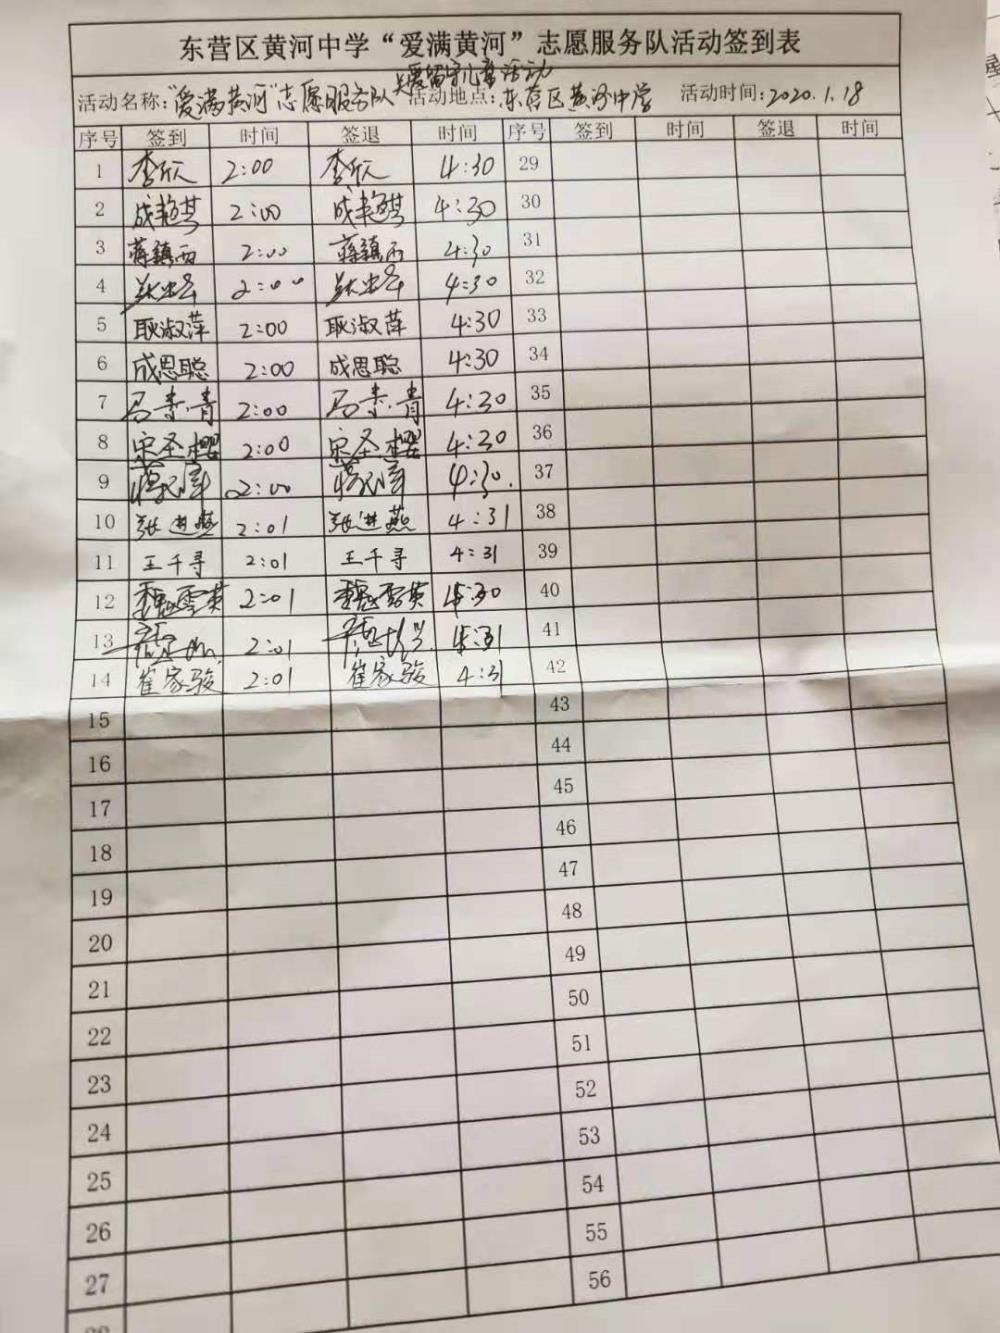 东营区黄河中学“爱满黄河”志愿服务队活动签到表
活动名称：“爱满黄河”志愿服务队关爱留守儿童活动 活动地点：东营区黄河中学 活动时间：2020.1.18
序号 签到 时间 签退 时间 序号 签到 时间 签退 时间
1 李欣 2:00 李欣 4:30 29
2 成艳琪 2:00 成艳琪 4:30 30
3 蒋镇西 2:00 蒋镇西 4:30 31
4 2:00 4:30 32
5 耿淑萍 2:00 耿淑萍 4:30 33
6 成思聪 2:00 成思聪 4:30 34
7 马素青 2:00 马素青 4:30 35
8 宋圣樱 2:00 宋圣樱 4:30 36
9 2:00 4:30. 37
10 张进燕 2:01 张进燕 4:31 38
11 王千寻 2:01 王千寻 4:31 39
12 魏雪英 2:01 魏雪英 40
13 2:01 41
14 崔家骏 2:01 崔家骏 4:31 42
15 43
16 44
17 45
18 46
19 47
20 48
21 49
22 50
23 51
24 52
25 53
26 54
27 55
56